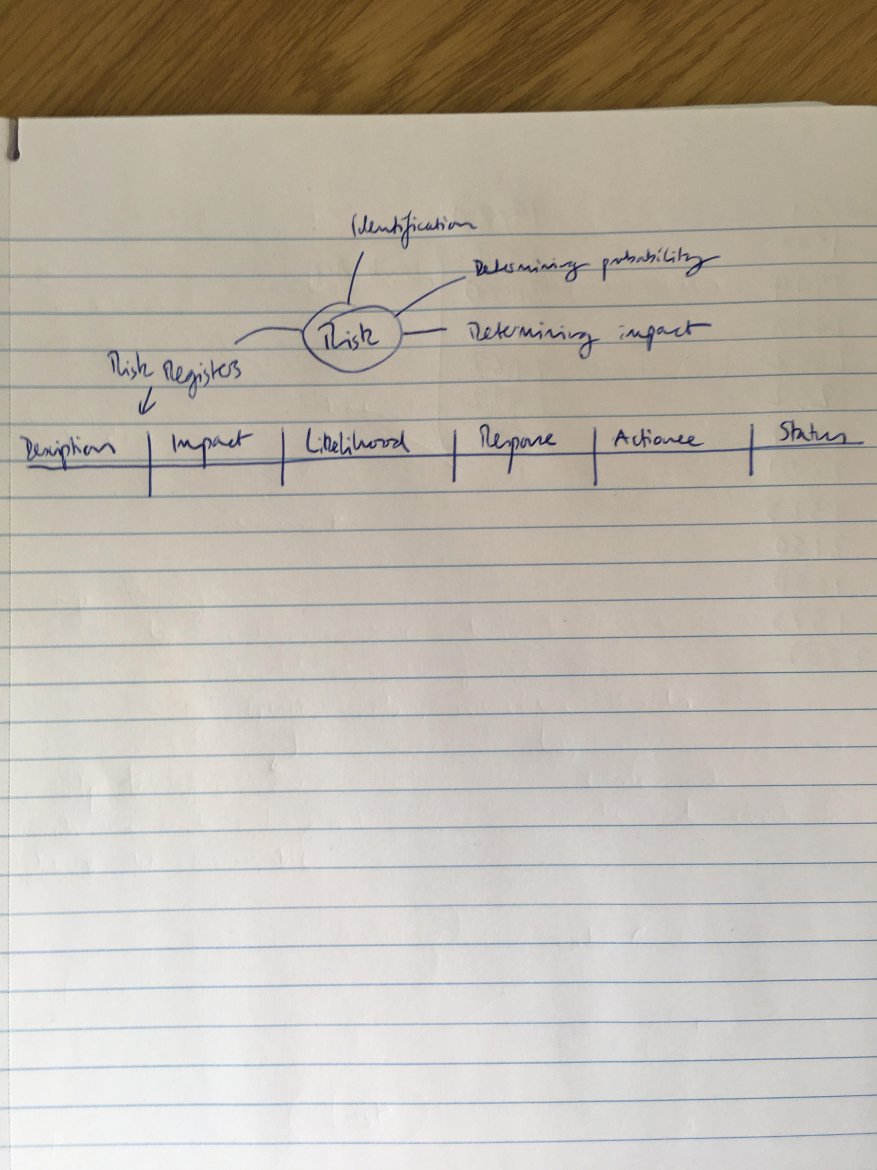 Identification
Determining probability
Risk
Determining impact
Risk Registers
Description Impact Likelihood Response Actionee Status